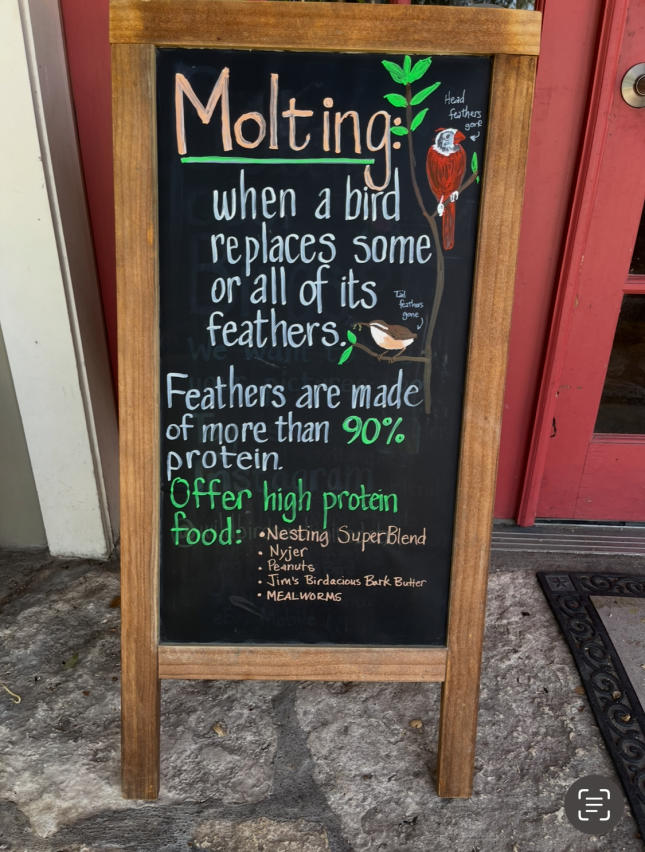 Molting:
Head
feathers
gone
when a bird
replaces some
or all of its
feathers.
Tail
feathers
gone
Feathers are made
of more than 90%
protein.
Offer high protein
food:
• Nesting SuperBlend
• Nyjer
• Peanuts
• Jim's Birdacious Bark Butter
• MEALWORMS